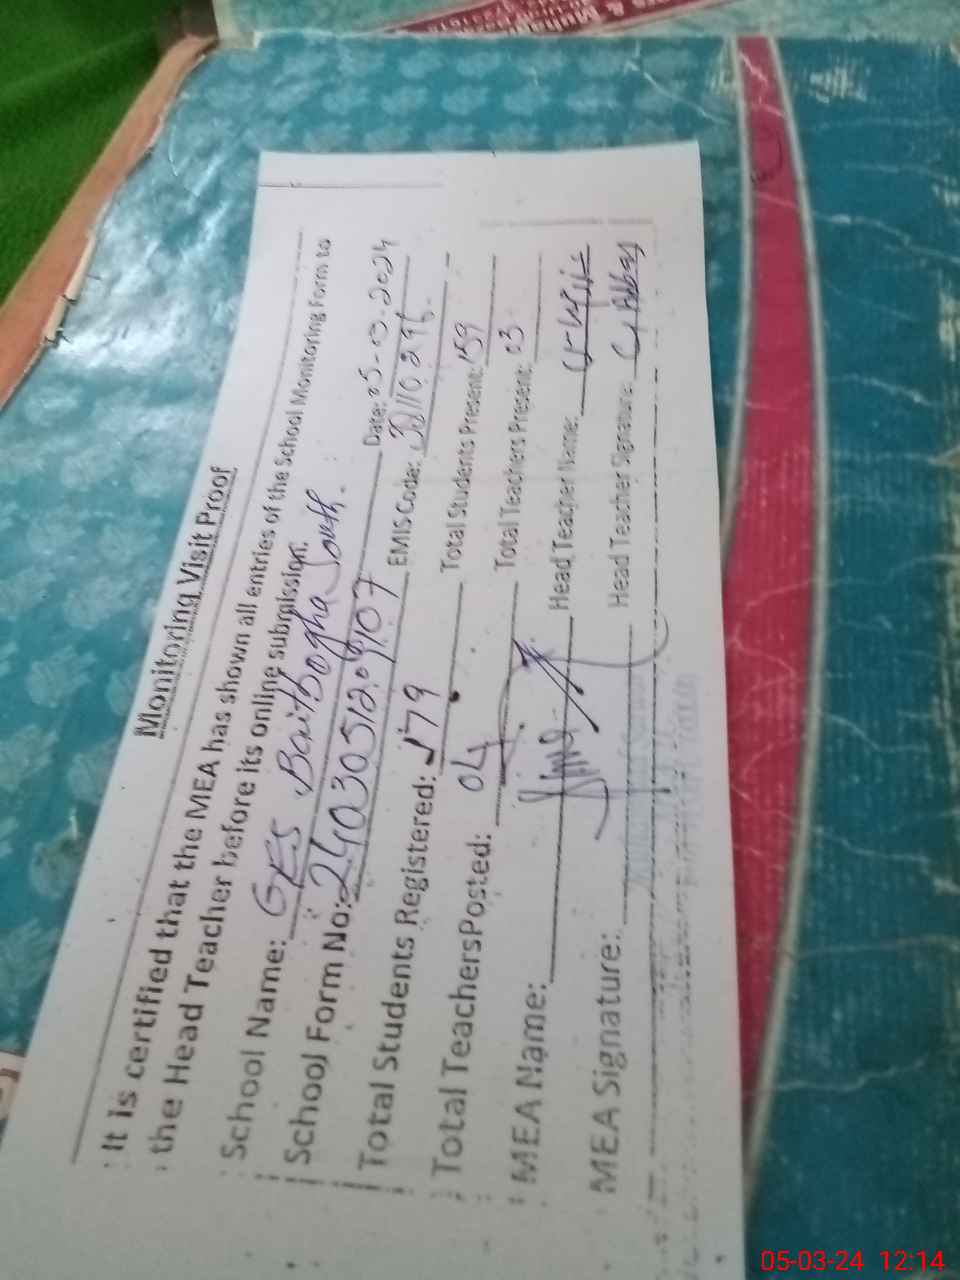 Monitoring Visit Proof
It is certified that the MEA has shown all entries of the School Monitoring Form to
the Head Teacher before its online submission.
School Name: GES Baitbogha South.
School Form No: 24030512.09107 Date: 05-03-2024
Total Students Registered: 179 EMIS Code: 110296
Total TeachersPosted: 04 Total Students Present: 159
Total Teachers Present: 03
MEA Name: Head Teacher Name:
MEA Signature: Head Teacher Signature:
05-03-24 12:14